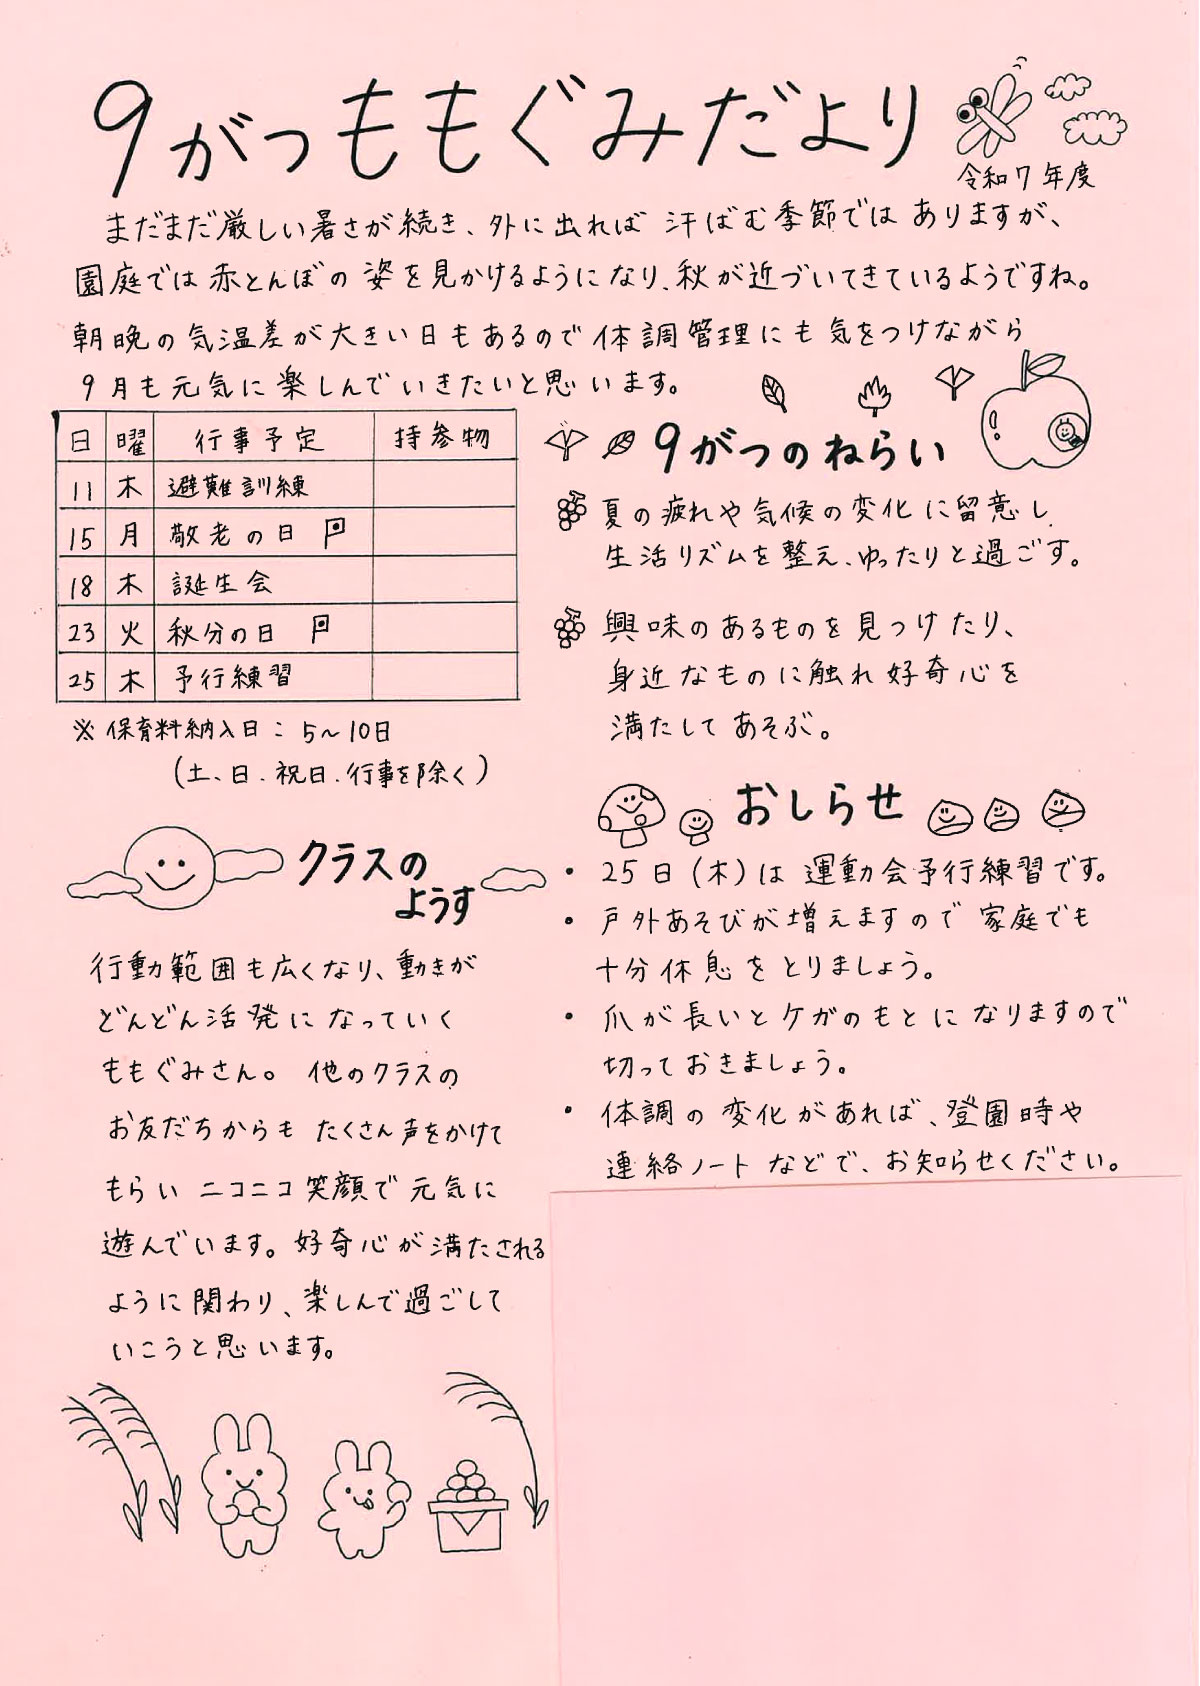 9がつももぐみだより
令和7年度
まだまだ厳しい暑さが続き、外に出れば汗ばむ季節ではありますが、
園庭では赤とんぼの姿を見かけるようになり、秋が近づいてきているようですね。
朝晩の気温差が大きい日もあるので体調管理にも気をつけながら
9月も元気に楽しんでいきたいと思います。
日 曜 行事予定 持参物
11 木 避難訓練
15 月 敬老の日
18 木 誕生会
23 火 秋分の日
25 木 予行練習
※保育料納入日：5〜10日
(土、日、祝日、行事を除く)
クラスの
ようす
行動範囲も広くなり、動きが
どんどん活発になっていく
ももぐみさん。他のクラスの
お友だちからもたくさん声をかけて
もらいニコニコ笑顔で元気に
遊んでいます。好奇心が満たされる
ように関わり、楽しんで過ごして
いこうと思います。
9がつのねらい
夏の疲れや気候の変化に留意し
生活リズムを整え、ゆったりと過ごす。
興味のあるものを見つけたり、
身近なものに触れ好奇心を
満たしてあそぶ。
おしらせ
・25日(木)は運動会予行練習です。
・戸外あそびが増えますので家庭でも
十分休息をとりましょう。
・爪が長いとケガのもとになりますので
切っておきましょう。
・体調の変化があれば、登園時や
連絡ノートなどで、お知らせください。